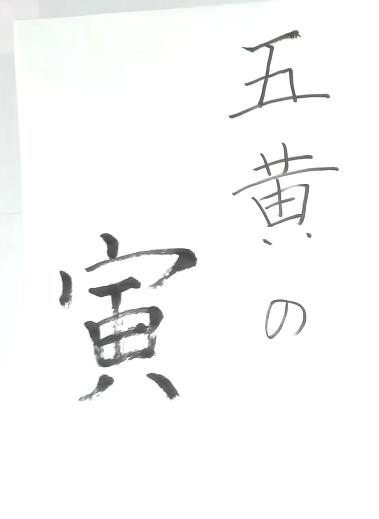 五黄の
寅